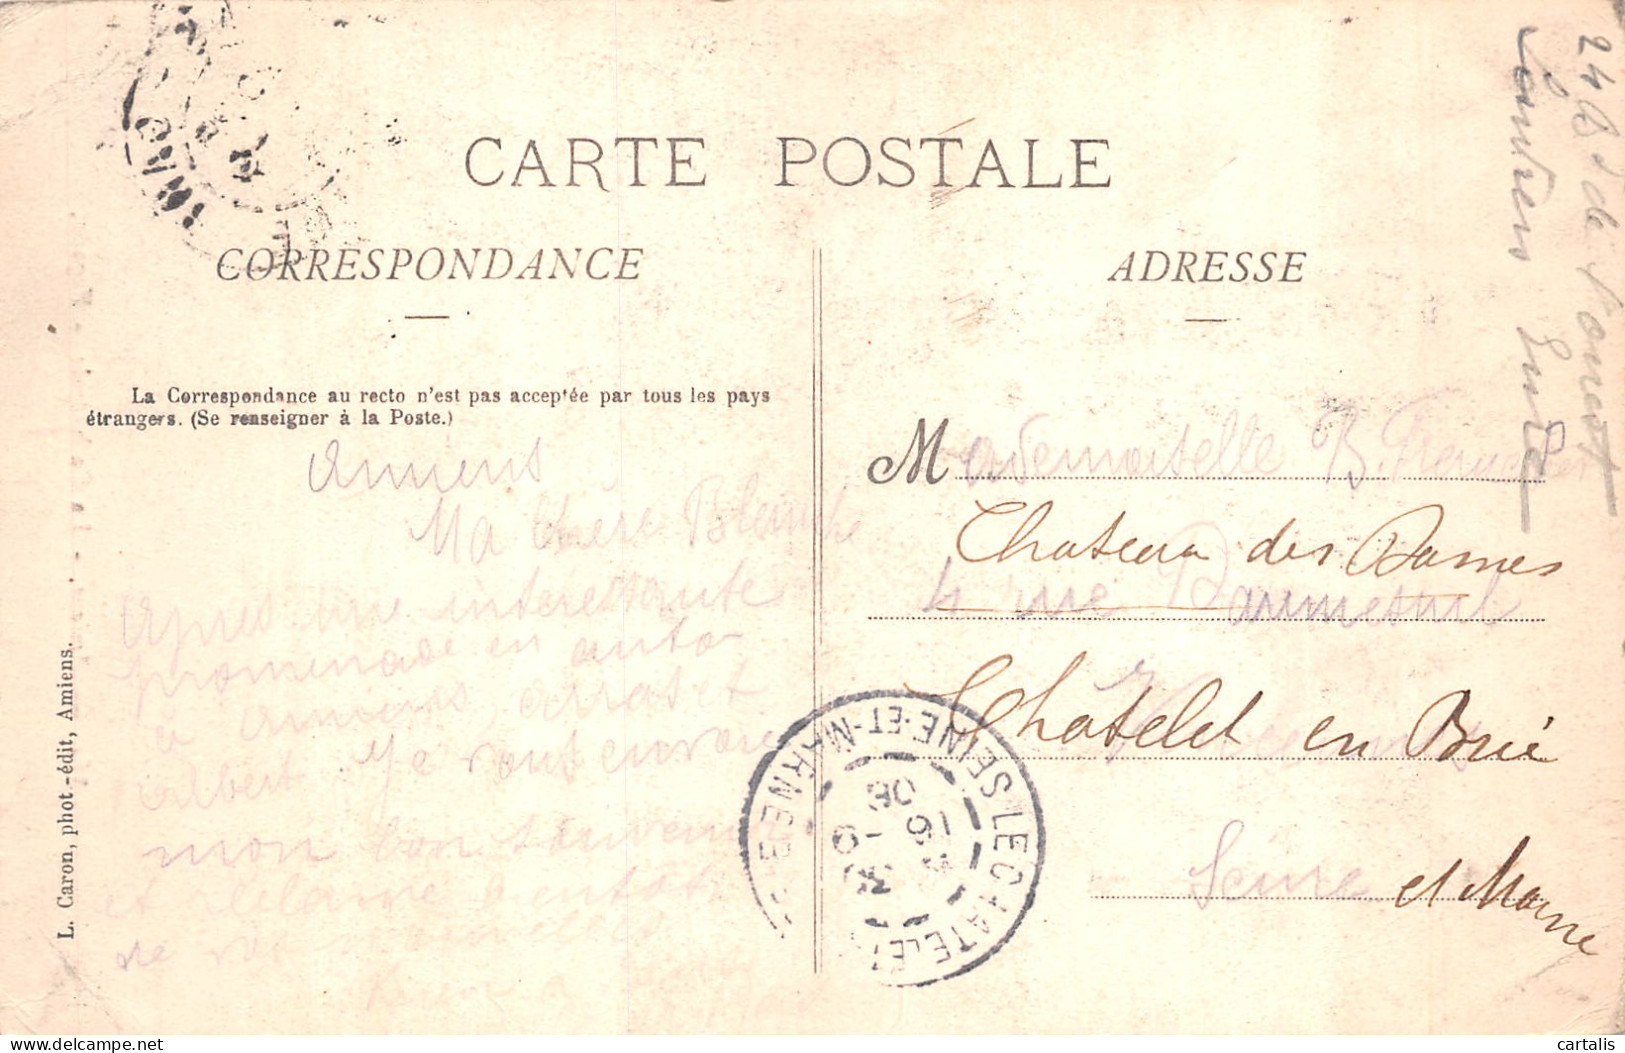 CARTE POSTALE
CORRESPONDANCE
ADRESSE
La Correspondance au recto n'est pas acceptée par tous les pays
étrangers. (Se renseigner à la Poste.)
Amiens
Ma Chère Blanche
après une interessante
promenade en auto
a amiens, arras et
albert je vous envoie
mon bon souvenir
et reclame bientôt
de vos nouvelles
Mademoiselle B.
Chateau des Dames
4 rue Daumesnil
Chatelet en Brie
Seine et Marne
24 B de
L. Caron, phot.-édit, Amiens.
LE CHATELET
SEINE-ET-MARNE
cartalis
delcampe.net